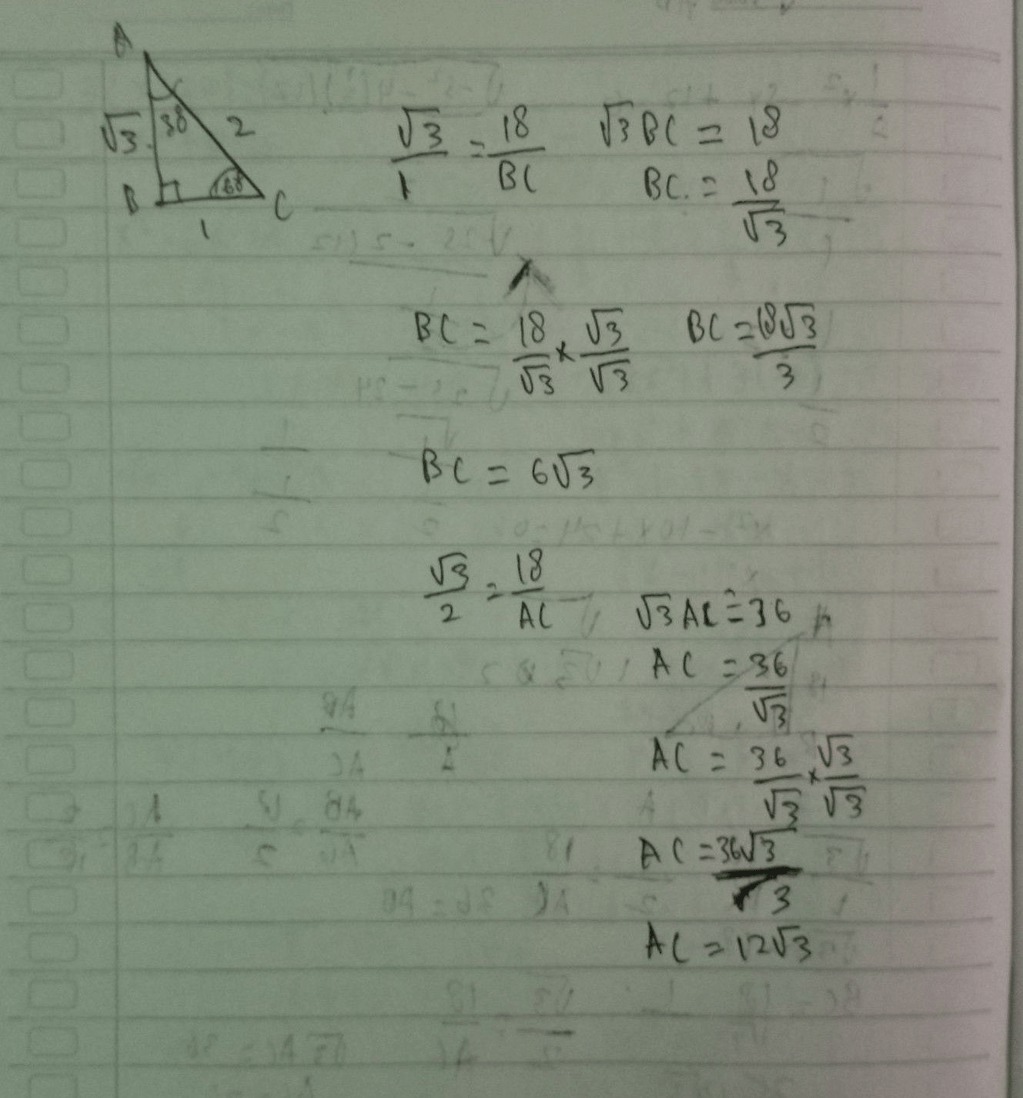 A
√3 30 2
B 60 C
1
√3/1 = 18/BC √3 BC = 18
BC = 18/√3
BC = 18/√3 × √3/√3 BC = 18√3/3
BC = 6√3
√3/2 = 18/AC √3 AC = 36
AC = 36/√3
AC = 36/√3 × √3/√3
AC = 36√3/3
AC = 12√3